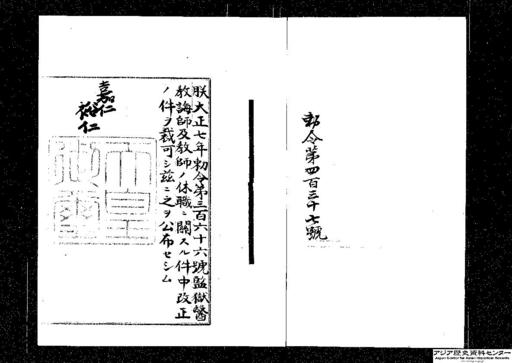 勅令第四百三十七號
朕大正七年勅令第三百六十六號監獄醫
教誨師及教師ノ休職ニ關スル件中改正
ノ件ヲ裁可シ茲ニ之ヲ公布セシム
嘉仁
裕仁
天皇
御璽
アジア歴史資料センター
Japan Center for Asian Historical Records